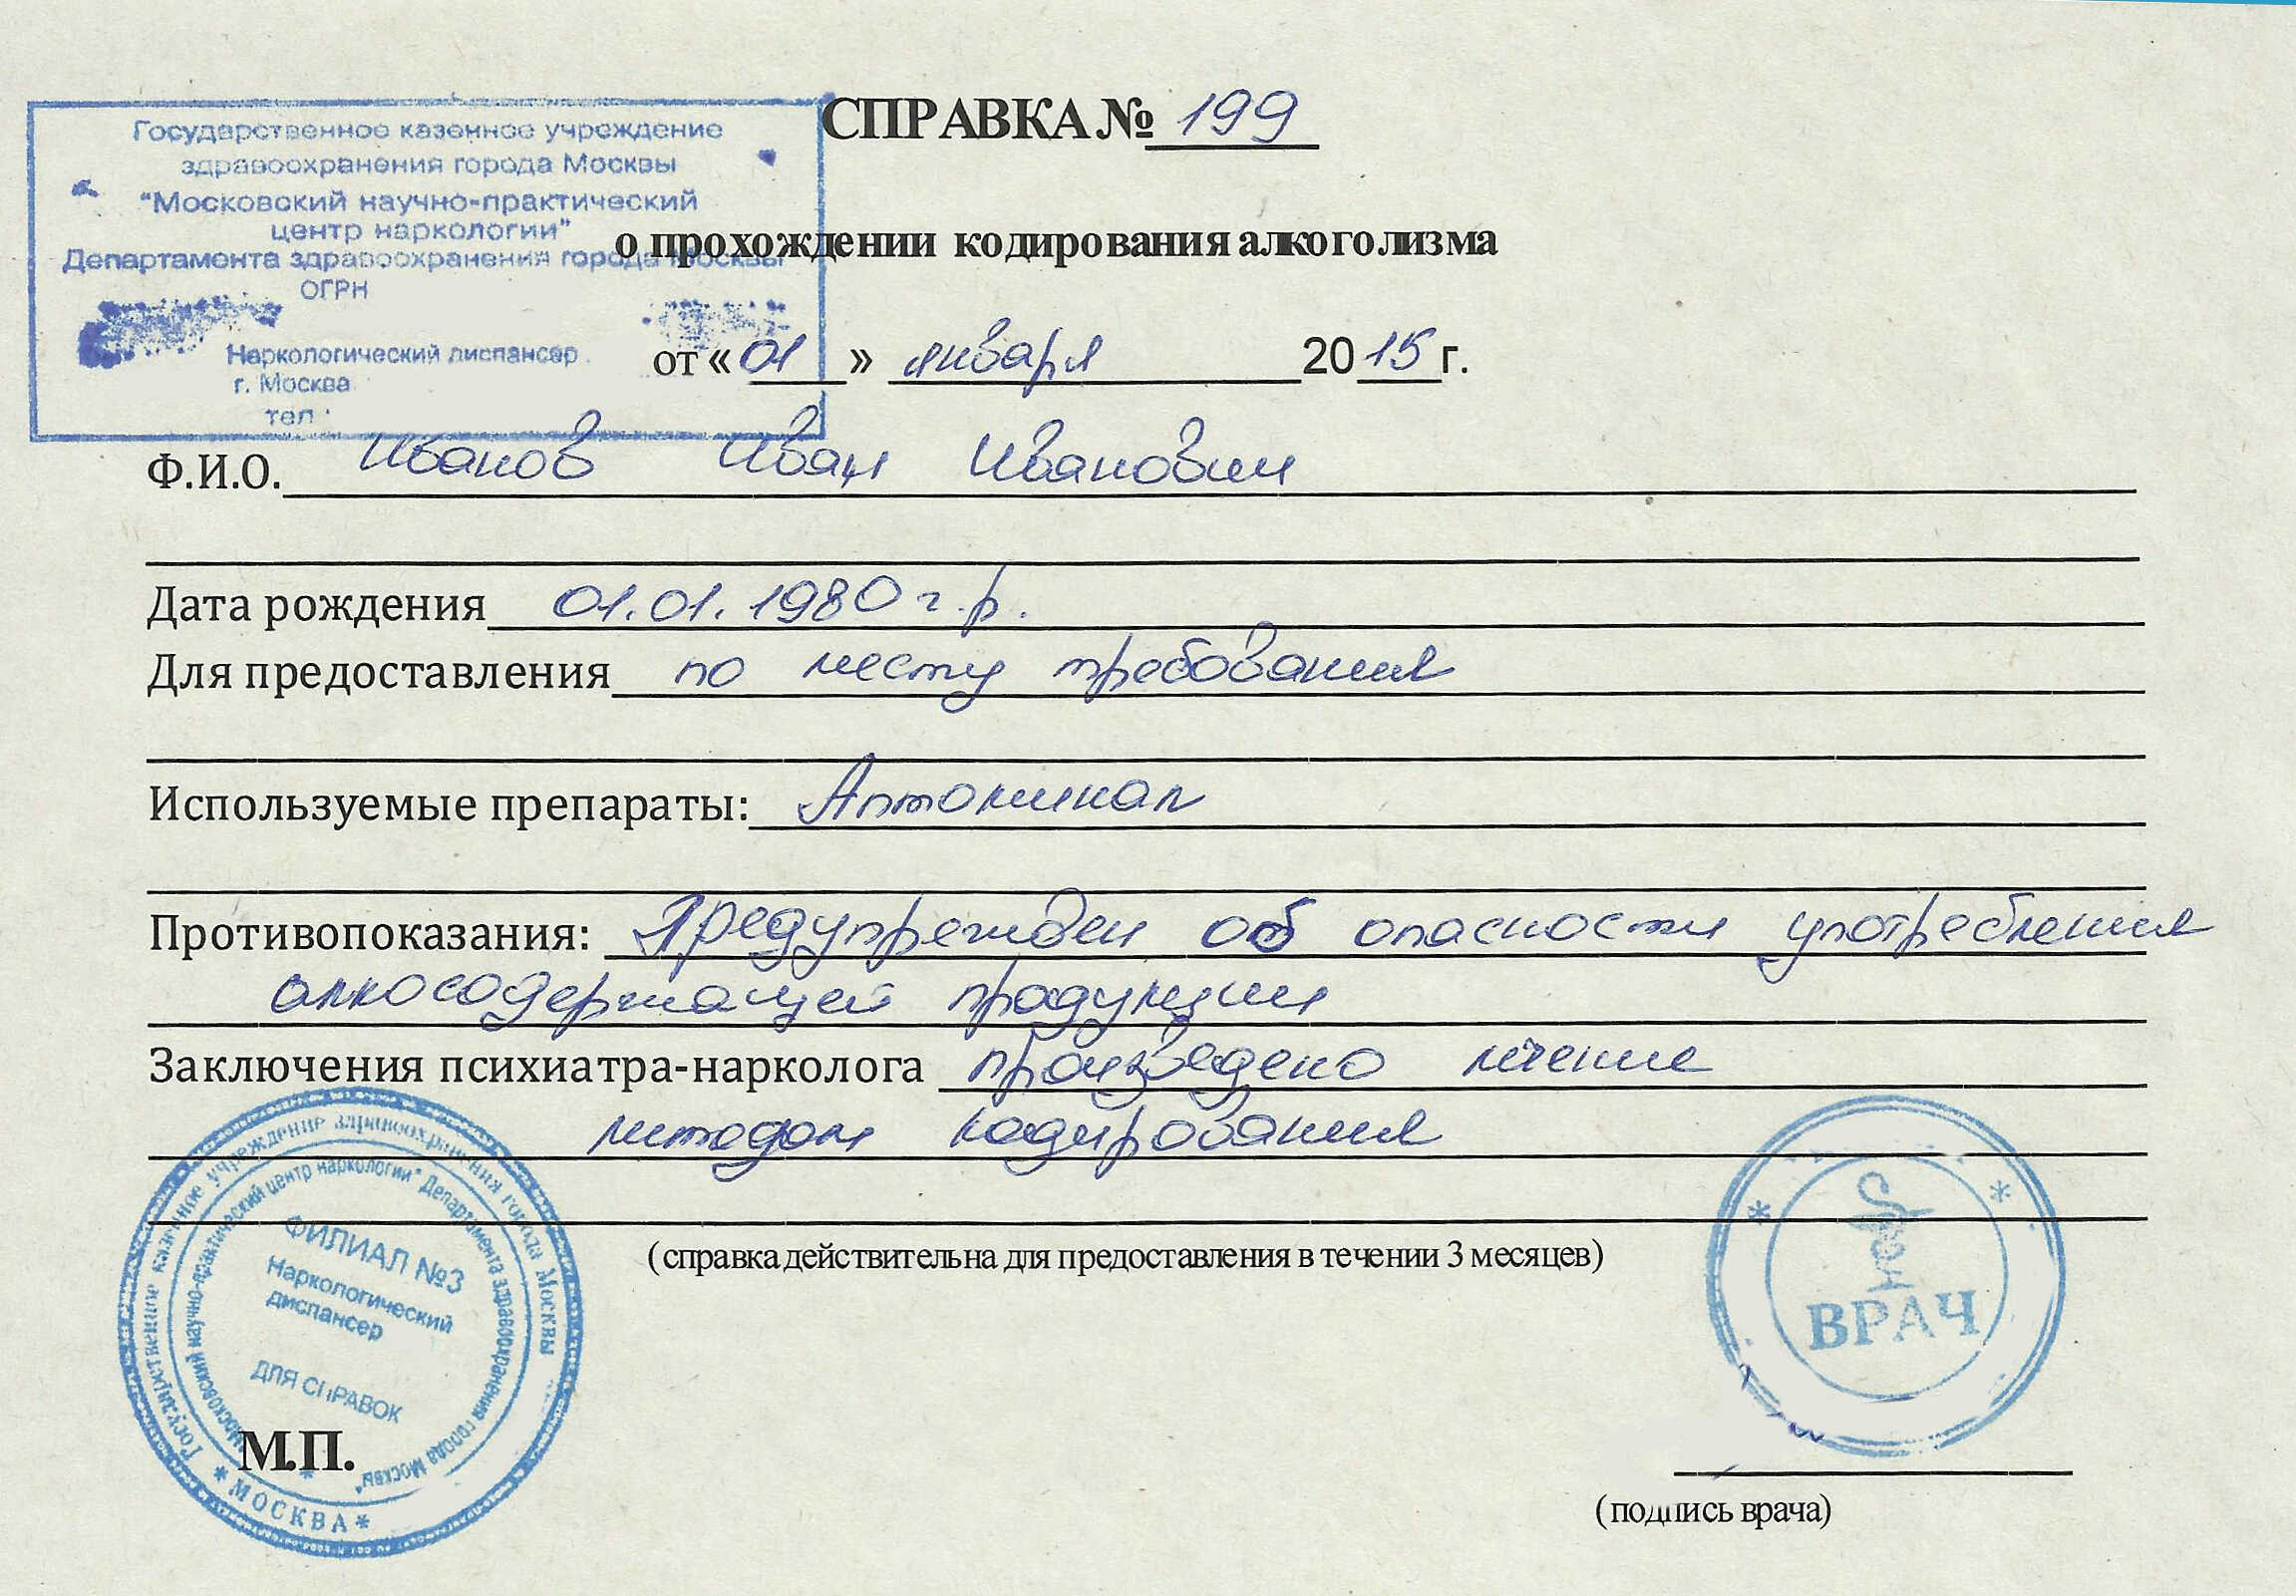 СПРАВКА № 199
Государственное казенное учреждение
здравоохранения города Москвы
"Московский научно-практический
центр наркологии"
Департамента здравоохранения города Москвы
ОГРН
Наркологический диспансер
г. Москва
тел.:
о прохождении кодирования алкоголизма
от « 01 » января 2015 г.
Ф.И.О. Иванов Иван Иванович
Дата рождения 01.01.1980 г.р.
Для предоставления по месту требования
Используемые препараты: Аптоминал
Противопоказания: Предупрежден об опасности употребления
алкосодержащей продукции
Заключения психиатра-нарколога произведено лечение
методом кодирования
(справка действительна для предоставления в течении 3 месяцев)
Государственное казенное учреждение здравоохранения города Москвы
"Московский научно-практический центр наркологии" Департамента здравоохранения города Москвы"
ФИЛИАЛ №3
Наркологический
диспансер
ДЛЯ СПРАВОК
* МОСКВА *
М.П.
ВРАЧ
(подпись врача)